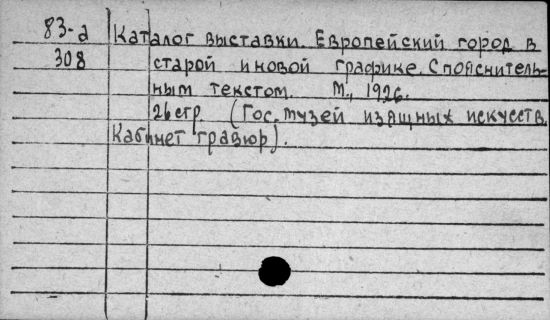 83-а Каталог выставки. Европейский город в
308 старой и новой графике. С пояснитель-
ным текстом. М., 1926.
26 стр. (Гос. музей изящных искусств.
Кабинет гравюр).